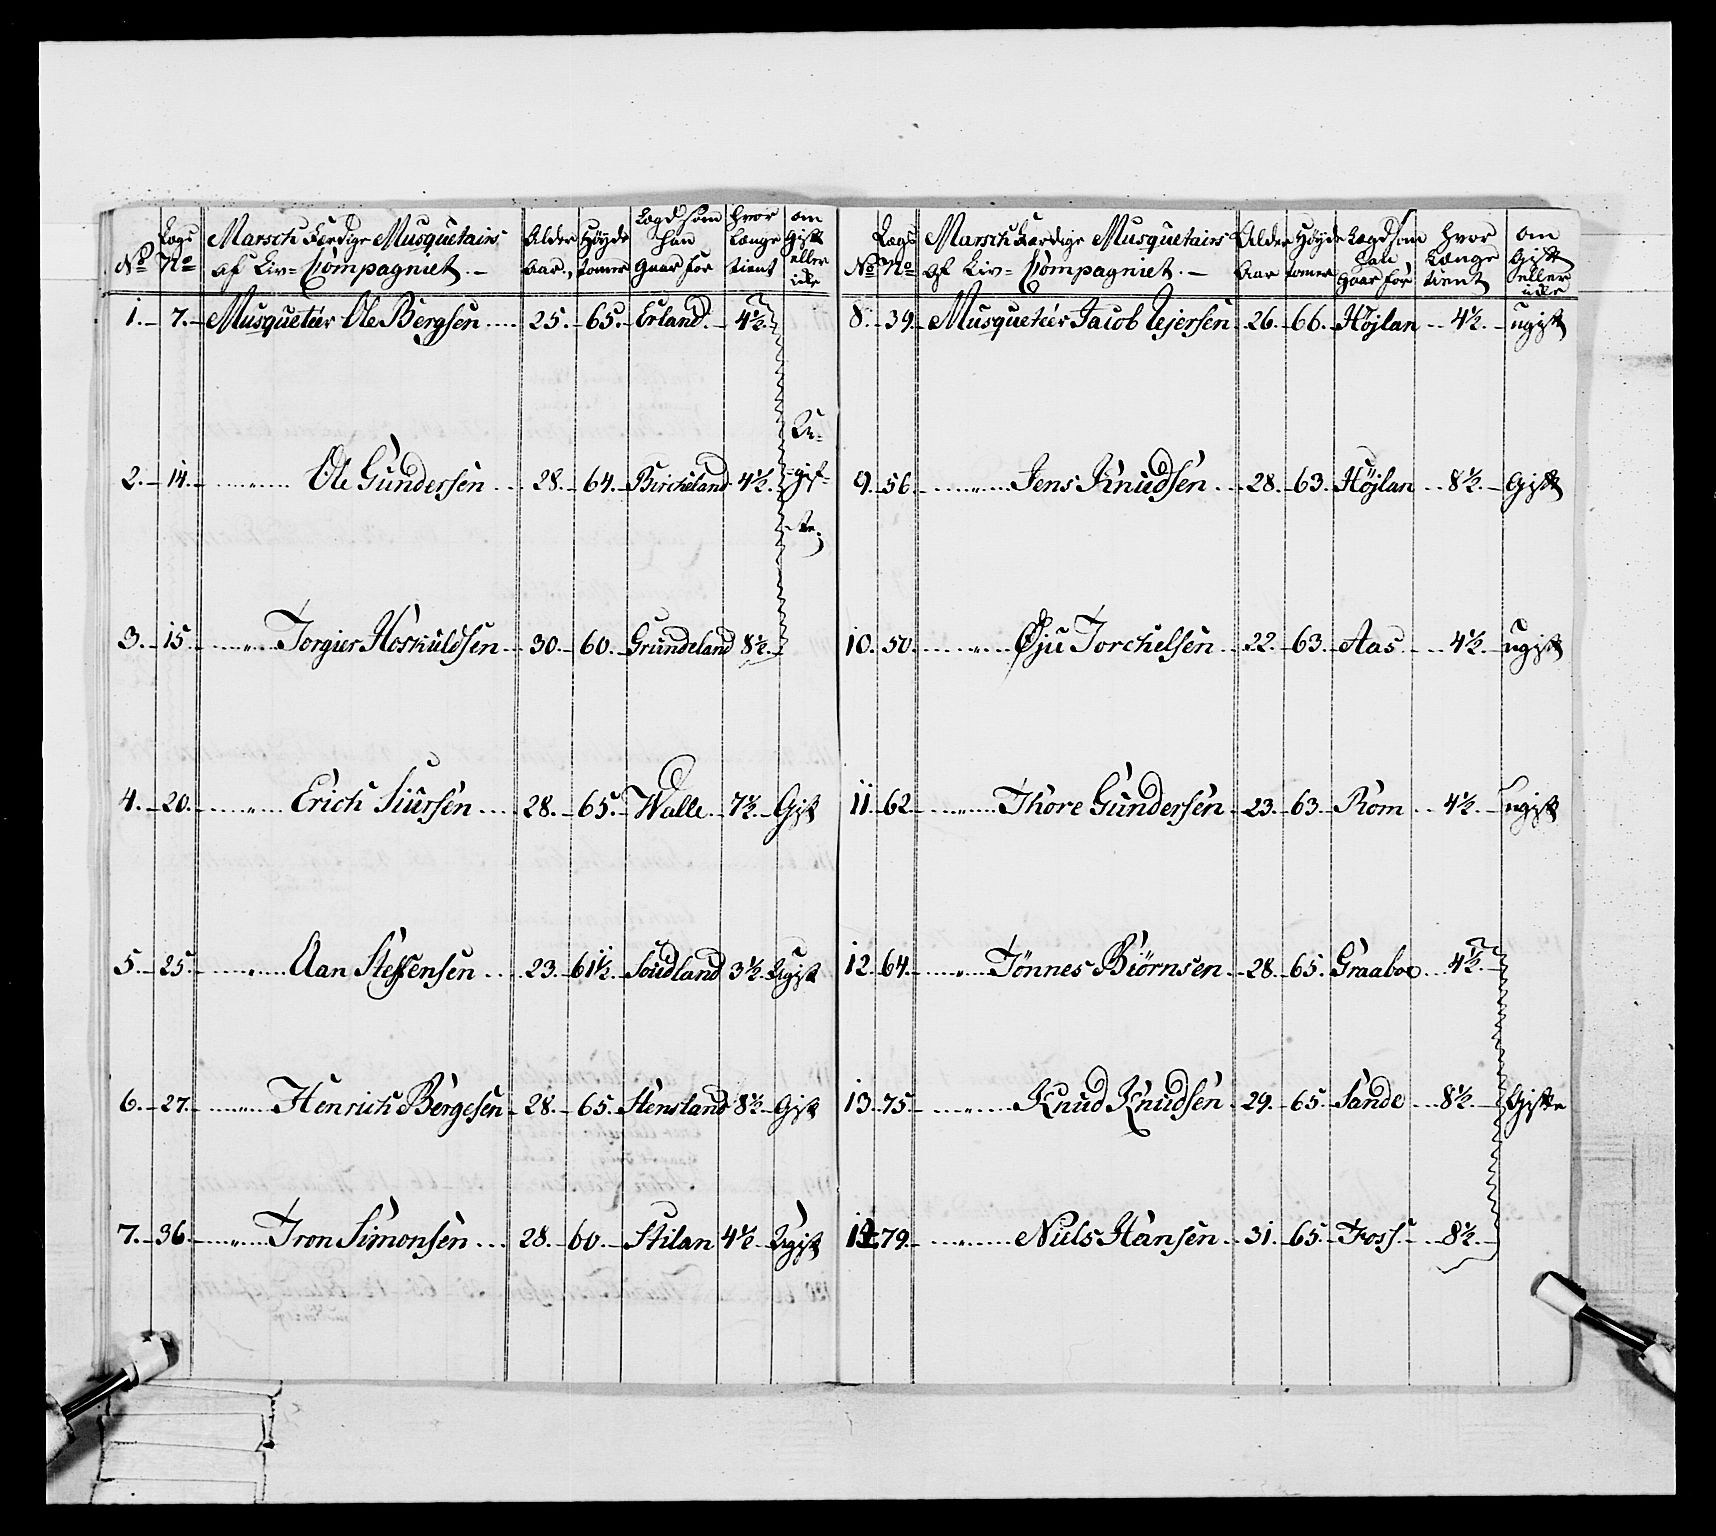 No
Lægs No
Marsch Færdige Musquetairs af Liv=Compagniet.—
Alder Aar.
Høyde tomer
Lægd som han Gaar for
hvor Længe tient
om Gift eller ikke
1. 7. Musqueteer Ole Bergsen 25. 65. Erland. 4½.
2. 14. " Ole Gundersen 28. 64. Bircheland 4½. Ugifte.
3. 15. " Torgier Hoskuldsen 30. 60. Grundeland 8½.
4. 20. " Erich Siursen 28. 65. Walle 7½. Gift
5. 25. " Aan Steffensen 23. 61½. Soudland 3½. Ugift
6. 27. " Henrich Bergesen 28. 65. Stensland 8½. Gift
7. 36. " Tron Simonsen 28. 60. Skilan 4½ Ugift
No
Lægs No
Marsch Færdige Musquetairs af Liv=Compagniet.—
Alder Aar
Høyde tomer
Lægd som han gaar for
hvor Længe tient
om Gift eller ikke
8. 39. Musqueteer Jacob Ejersen 26. 66. Höjlan 4½. ugift
9. 56. " Jens Knudsen 28. 63. Höjlan 8½. Gift
10. 50. " Øju Torchelsen 22. 63. Aas 4½. ugift
11. 62. " Thore Gundersen 23. 63. Rom 4½. ugift
12. 64. " Tönnes Biörnsen 28. 65. Graaboe 4½.
13. 75. " Knud Knudsen 29. 65. Sande 8½. Gifte
14. 79. " Niels Hansen 31. 65. Foss 8½.